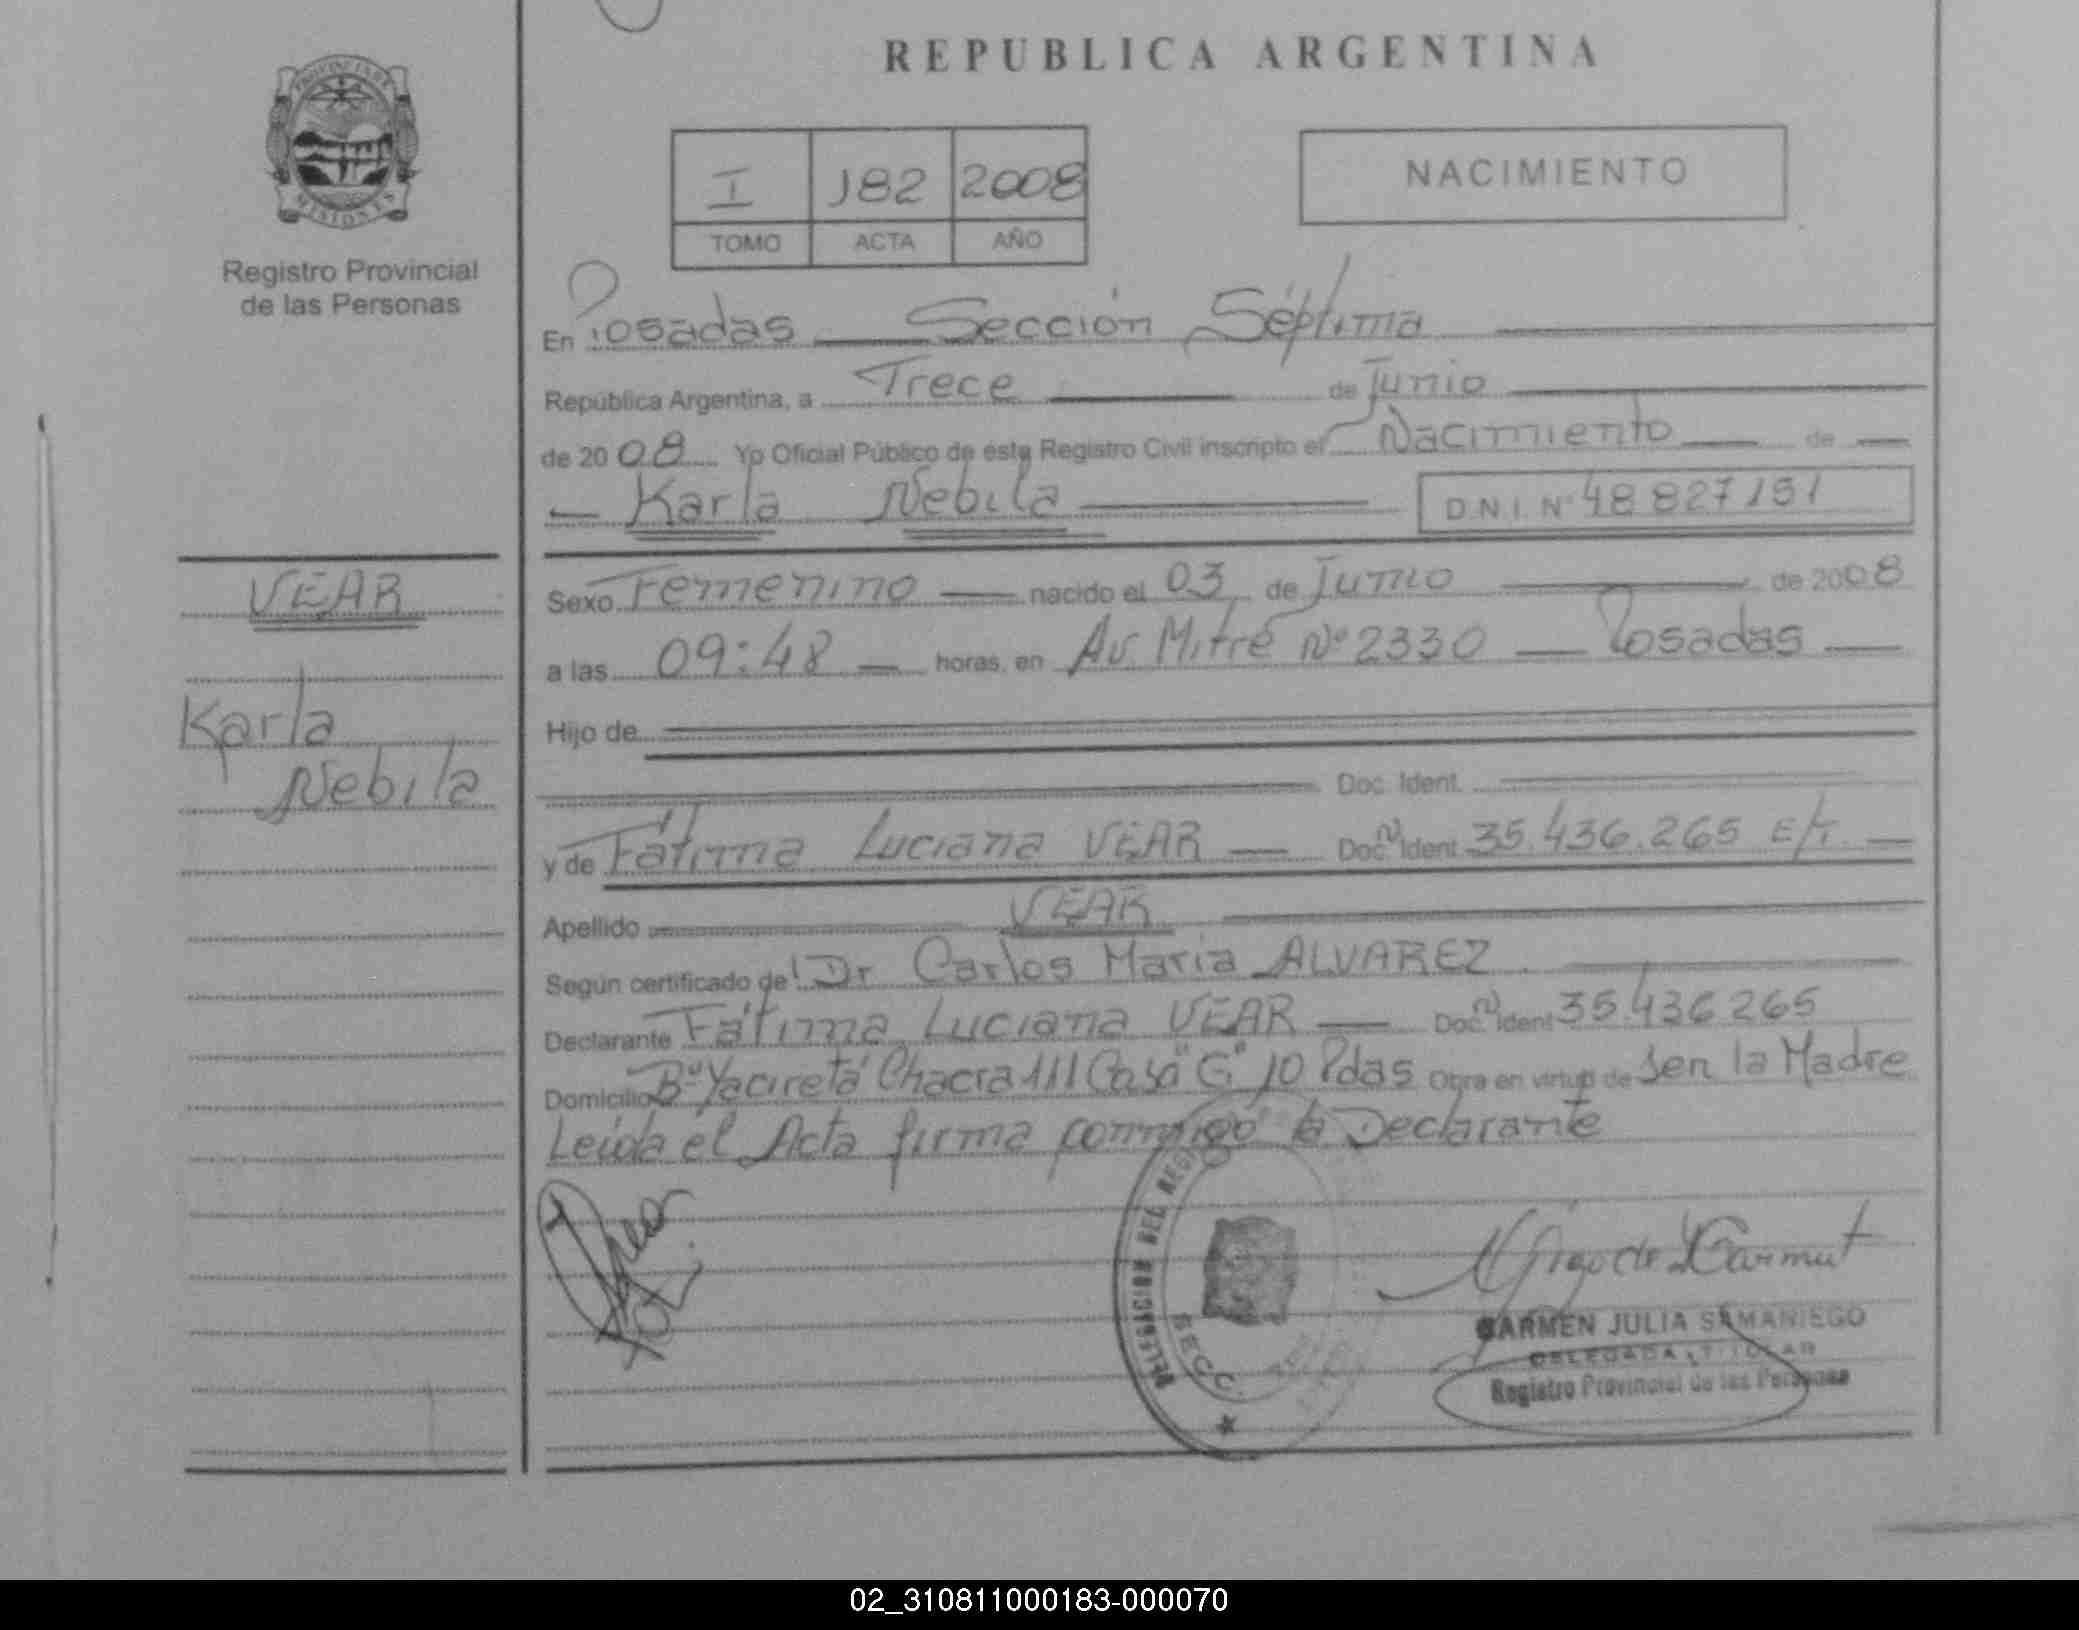 REPUBLICA ARGENTINA
PROVINCIA DE
MISIONES
Registro Provincial
de las Personas
I 182 2008
TOMO ACTA AÑO
NACIMIENTO
En Posadas Sección Séptima
República Argentina, a Trece de Junio
de 2008 Yo Oficial Público de este Registro Civil inscripto el Nacimiento de
Karla Nebila D.N.I. Nº 48 827 151
VEAR
Karla
Nebila
Sexo Femenino nacido el 03 de Junio de 2008
a las 09:48 horas, en Av. Mitre Nº 2330 Posadas
Hijo de
Doc. Ident.
y de Fátima Luciana VEAR Doc. N Ident 35.436.265 E/T.
Apellido VEAR
Según certificado de Dr Carlos Maria ALVAREZ
Declarante Fátima Luciana VEAR Doc. N Ident 35.436 265
Domicilio Bº Yacireta Chacra 111 Casa "G" 10 Pdas Obra en virtud de Ser la Madre
Leída el Acta firma conmigo la Declarante
DELEGACION DEL REGI
SECC.
CARMEN JULIA SAMANIEGO
DELEGADA TITULAR
Registro Provincial de las Personas
02_310811000183-000070